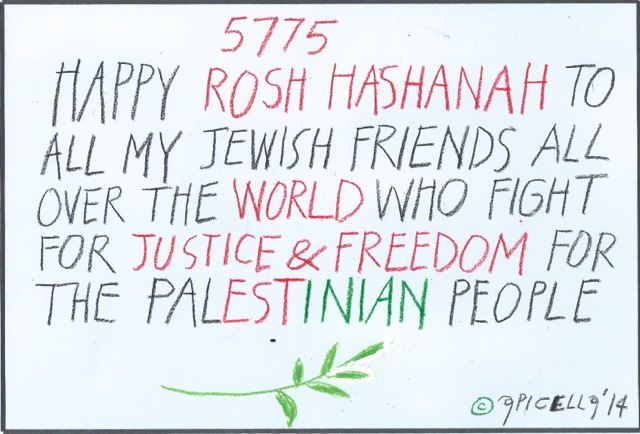 5775
HAPPY ROSH HASHANAH TO
ALL MY JEWISH FRIENDS ALL
OVER THE WORLD WHO FIGHT
FOR JUSTICE & FREEDOM FOR
THE PALESTINIAN PEOPLE
© APICELLA '14